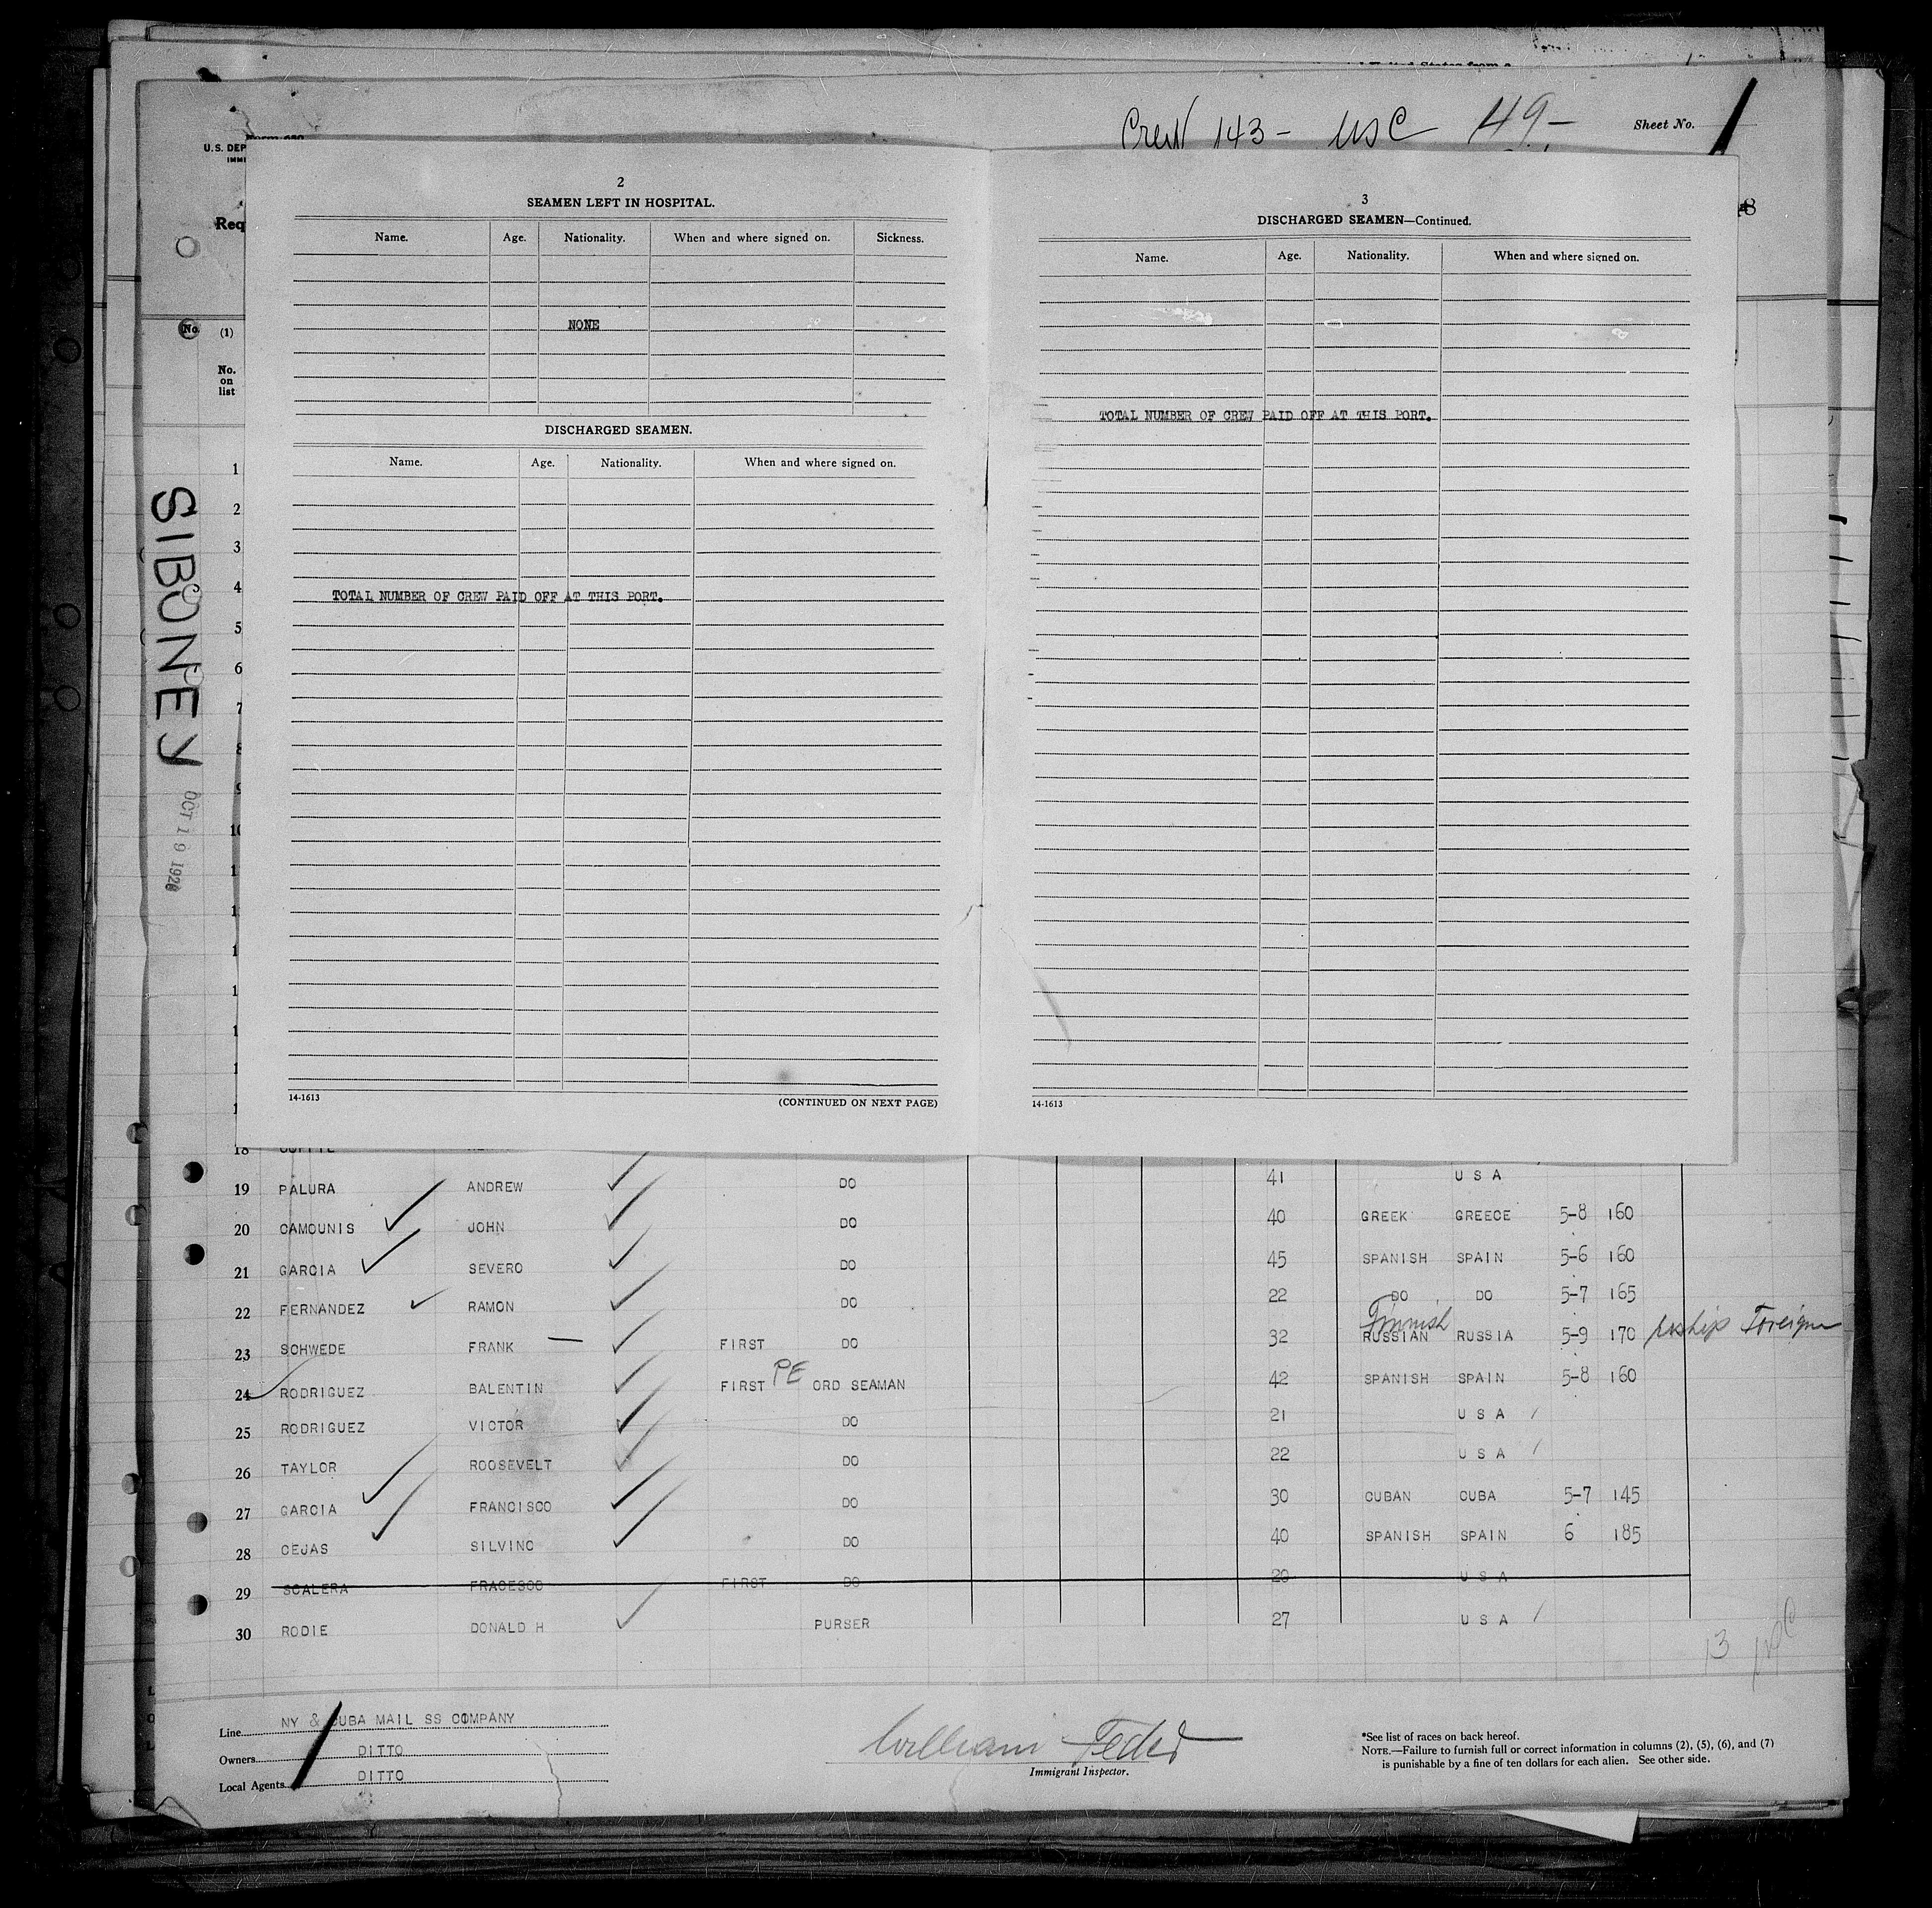 Crew 143- USC 49- Sheet No.
U.S. DEP
IMMI
Req
No.
(1)
No.
on
list
SIBONEY
OCT 19 1926
2
SEAMEN LEFT IN HOSPITAL.
Name. Age. Nationality. When and where signed on. Sickness.
NONE
DISCHARGED SEAMEN.
Name. Age. Nationality. When and where signed on.
TOTAL NUMBER OF CREW PAID OFF AT THIS PORT.
14-1613 (CONTINUED ON NEXT PAGE)
3
DISCHARGED SEAMEN—Continued.
Name. Age. Nationality. When and where signed on.
TOTAL NUMBER OF CREW PAID OFF AT THIS PORT.
14-1613
1
2
3
4
5
6
7
8
9
10
18
19 PALURA ANDREW DO 41 U S A
20 CAMOUNIS JOHN DO 40 GREEK GREECE 5-8 160
21 GARCIA SEVERO DO 45 SPANISH SPAIN 5-6 160
22 FERNANDEZ RAMON DO 22 DO DO 5-7 165
Finnish
23 SCHWEDE FRANK — FIRST DO 32 RUSSIAN RUSSIA 5-9 170 reship Foreign
24 RODRIGUEZ BALENTIN FIRST PE ORD SEAMAN 42 SPANISH SPAIN 5-8 160
25 RODRIGUEZ VICTOR DO 21 U S A
26 TAYLOR ROOSEVELT DO 22 U S A
27 GARCIA FRANCISCO DO 30 CUBAN CUBA 5-7 145
28 CEJAS SILVINO DO 40 SPANISH SPAIN 6 185
29 SCALERA FRACESCO FIRST DO 20 U S A
30 RODIE DONALD H PURSER 27 U S A
13
Line NY & CUBA MAIL SS COMPANY
Owners DITTO
Local Agents DITTO
William Feder
Immigrant Inspector.
*See list of races on back hereof.
NOTE.—Failure to furnish full or correct information in columns (2), (5), (6), and (7)
is punishable by a fine of ten dollars for each alien. See other side.